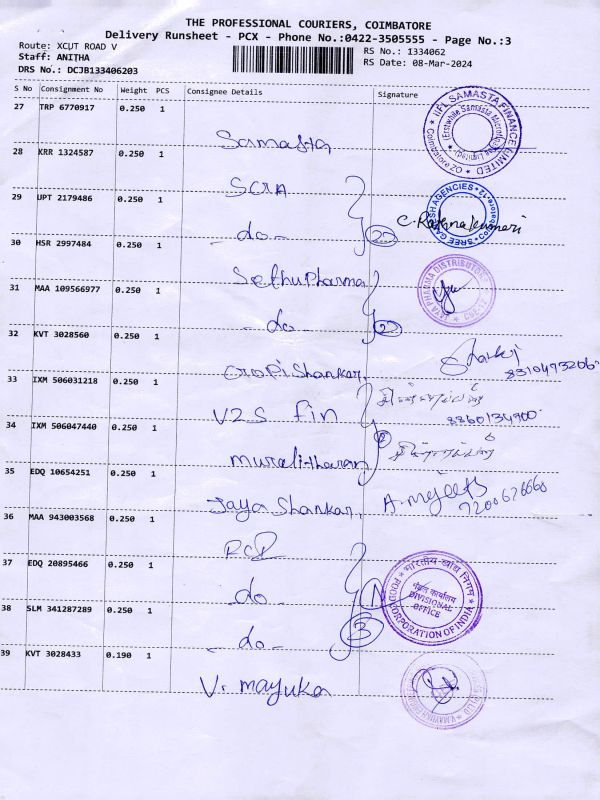 THE PROFESSIONAL COURIERS, COIMBATORE
Delivery Runsheet - PCX - Phone No.:0422-3505555 - Page No.:3
Route: XCUT ROAD V
RS No.: 1334062
Staff: ANITHA
RS Date: 08-Mar-2024
DRS No.: DCJB133406203
S No Consignment No Weight PCS Consignee Details Signature
27 TRP 6770917 0.250 1
Samasta
IIFL SAMASTA FINANCE LIMITED
28 KRR 1324587 0.250 1
SCRA
29 UPT 2179486 0.250 1
SREE GANESH AGENCIES
Coimbatore-12
-do-
30 HSR 2997484 0.250 1
Sethu Pharma
31 MAA 109566977 0.250 1
JAYA PHARMA DISTRIBUTORS
-do-
32 KVT 3028560 0.250 1
Gopi Shankar.
33 IXM 506031218 0.250 1
V2S fin
8860134900
34 IXM 506047440 0.250 1
Muralitharan
35 EDQ 10654251 0.250 1
Jaya Shankar.
36 MAA 943003568 0.250 1
37 EDQ 20895466 0.250 1
भारतीय खाद्य निगम
मंडल कार्यालय
DIVISIONAL
OFFICE
FOOD CORPORATION OF INDIA
do
38 SLM 341287289 0.250 1
3
-do-
39 KVT 3028433 0.190 1
V. mayuka